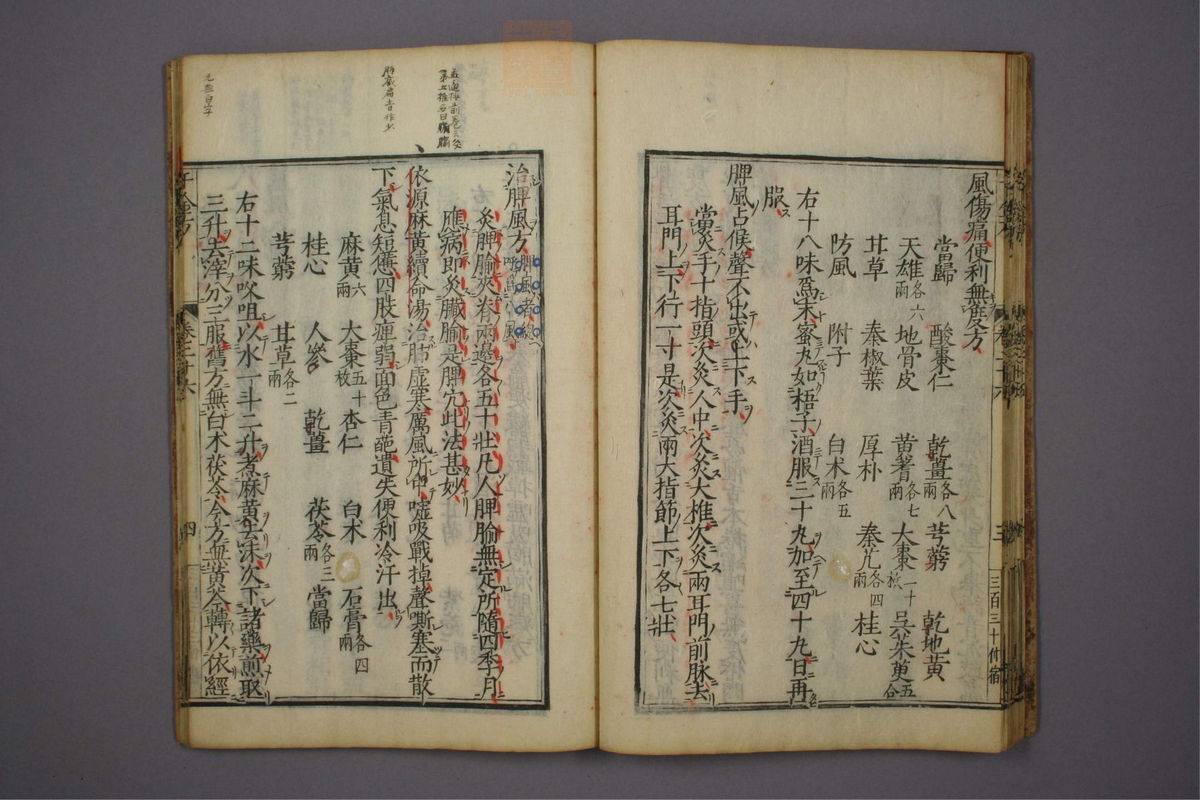 風傷痛便利無度方
當歸 酸棗仁 乾薑各八兩 芎藭 乾地黃
天雄各六兩 地骨皮 黃耆各七兩 大棗二十枚 吳茱萸五合
甘草 秦椒葉 厚朴 秦艽各四兩 桂心
防風 附子 白朮各五兩
右十八味爲末蜜丸如梧子酒服三十丸加至四十九日再
服
脾風占候聲不出或上下手
當灸手十指頭次灸人中次灸大椎次灸兩耳門前脉去
耳門上下行一寸是次灸兩大指節上下各七壯
三百三十
治脾風方
灸脾腧夾脊兩邊各五十壯凡人脾腧無定所隨四季月
應病即灸臟腧是脾穴此法甚妙
依源麻黃續命湯治肺虛寒厲風所中噓吸戰掉聲嘶塞而散
下氣息短憊四肢痺弱面色青葩遺失便利冷汗出
麻黃六兩 大棗五十枚 杏仁 白朮 石膏各四兩
桂心 人參 乾薑 茯苓各三兩 當歸
芎藭 甘草各二兩
右十二味㕮咀以水一斗二升煮麻黃去沫次下諸藥煎取
三升去滓分三服舊方無白朮茯苓今方無黃芩轉以依經
卷二十六
四